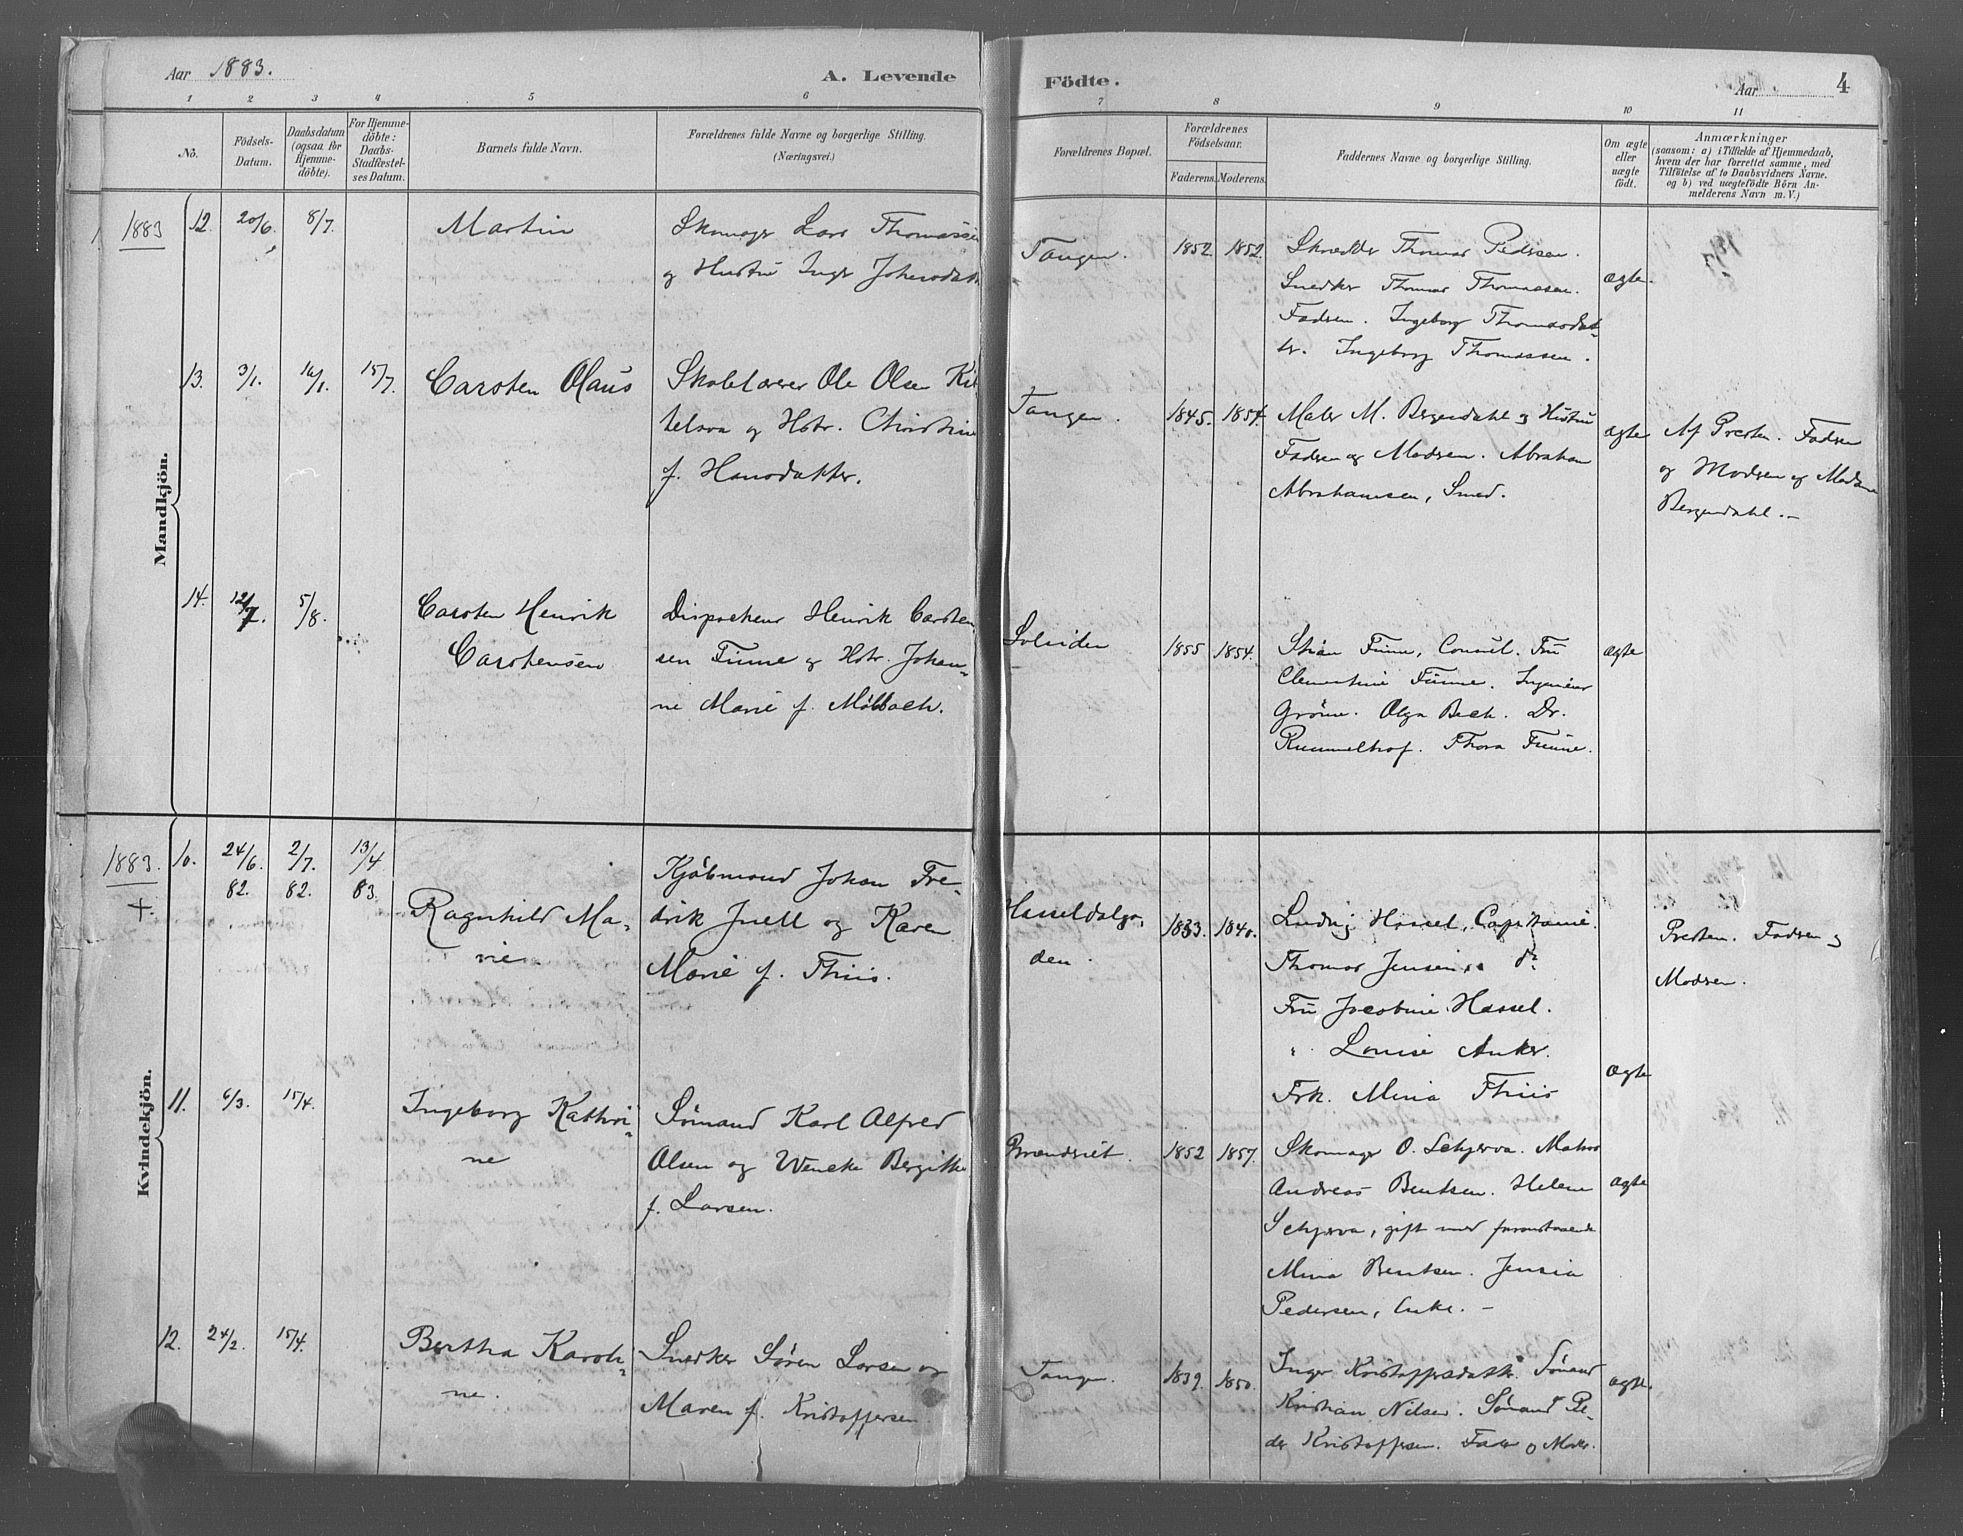 Aar 1883.
A. Levende
Födte.
Aar
4
1 2 3 4 5 6
7 8 9 10 11
No.
Födsels-
Datum.
Daabsdatum
(ogsaa for
Hjemme-
döbte).
For Hjemme-
döbte:
Daabs-
Stadfæstel-
ses Datum.
Barnets fulde Navn.
Forældrenes fulde Navne og borgerlige Stilling.
(Næringsvei.)
Forældrenes Bopæl.
Forældrenes
Födselsaar.
Faderens. Moderens.
Faddernes Navne og borgerlige Stilling.
Om ægte
eller
uægte
födt.
Anmærkninger
(saasom: a) i Tilfælde af Hjemmedaab,
hvem der har forrettet samme, med
Tilföielse af to Daabsvidners Navne.
og b) ved uægtefödte Börn An-
melderens Navn m. V.)
Mandkjön.
1883 12. 20/6. 8/7.
Martin
Skomager Lars Thomassen
og Hustru Inger
Tangen.
1852. 1852.
Skrædder Thomas Pedersen.
Snedker Thomas Thomassen.
Fadren. Ingeborg Thomasdat-
ter. Ingeborg Thomassen.
ægte.
13. 3/1. 16/1. 15/7.
Carsten Olaus
Skolelærer Ole Olsen Kit
telsaa og Hstr. Christine
f. Hansdatter.
Tangen.
1845. 1854.
Maler M. Bergendahl og Hustru
Fadren og Modren. Abraham
Abrahamsen, Smed.
ægte
Af Presten. Fadren
og Modren og Madam
Bergendahl. –
14. 12/7. 5/8.
Carsten Henrik
Carstensen
Dispacheur Henrik Carsten
sen Finne og Hstr. Johan-
ne Marie f. Møllbach.
Solsiden
1855 1854.
Stian Finne, Consul. Fru
Clementine Finne. Ingeniør
Grønn. Olga Bech. Dr.
Rummelhof. Thora Finne.
ægte
Kvindekjön.
1883. 10. 24/6. 2/7. 13/4
82. 82. 83.
+.
Ragnhild Ma-
rie.
Kjøbmand Johan Fre-
drik Juell og Karen
Marie f. Thiis.
Hasseldalgr.
den.
1833. 1840.
Ludvig Hassel, Capitaine.
Thomas Jensen, do
Fru Jacobine Hassel.
" Louise Anker.
Frk. Mina Thiis
ægte
Presten. Fadren og
Modren.
11. 6/3. 15/4.
Ingeborg Kathri-
ne
Sømand Karl Alfred
Olsen og Wencke Bergitte
f. Larsen.
1852 1857.
Skomager O. Schjerva. Matros
Andreas Bentsen. Helene
Schjerva, gift med foranstaaende
Mina Bentsen. Jensia
Pedersen, Enke. –
ægte
12. 24/2. 15/4.
Bertha Karoli-
ne.
Snedker Søren Larsen og
Maren f. Kristoffersen.
Tangen.
1839. 1850.
Inger Kristoffersdatter. Sømand
Kristian Nilsen. Sømand Pe-
der Kristoffersen. Fader og Moder.
ægte.